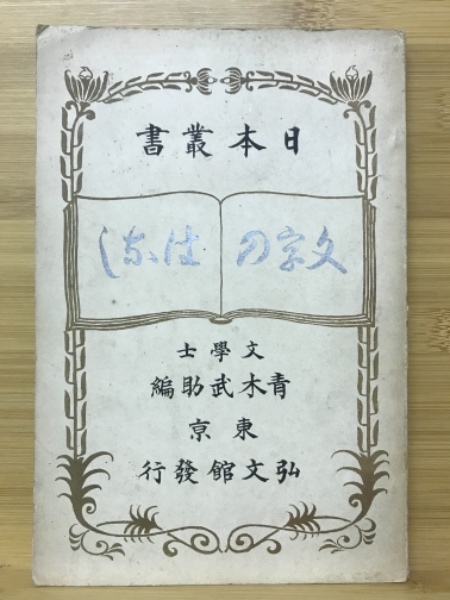 日本叢書
文字のはなし
文學士
青木武助編
東京
弘文館發行